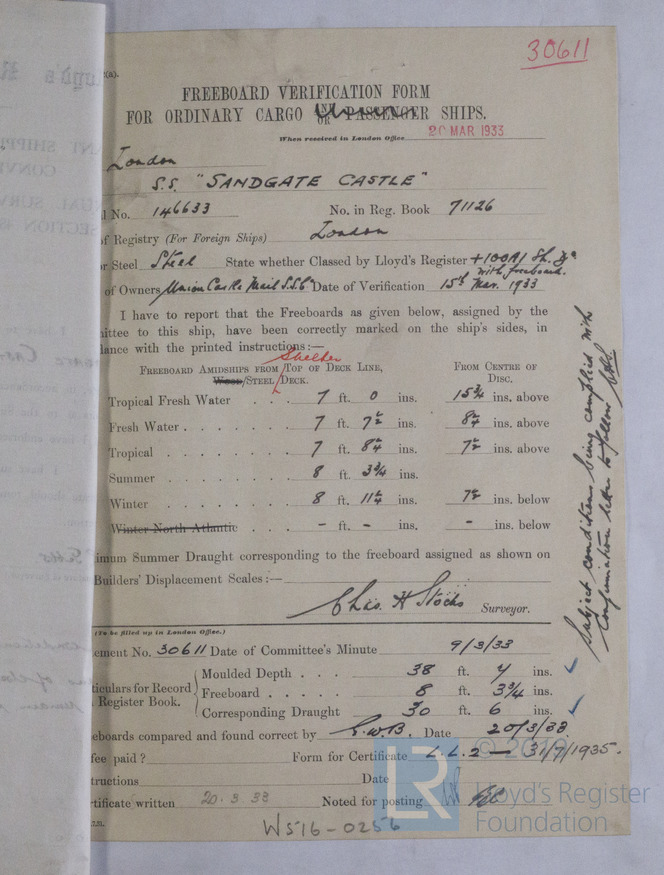 30611
(a).
FREEBOARD VERIFICATION FORM
FOR ORDINARY CARGO AND OR PASSENGER SHIPS.
When received in London Office 20 MAR 1933
London
S.S. "SANDGATE CASTLE"
l No. 146633 No. in Reg. Book 71126
of Registry (For Foreign Ships) London
or Steel Steel State whether Classed by Lloyd's Register +100A1 Sh. Dk
with freeboard.
of Owners Union Castle Mail S.S. Co Date of Verification 15th Mar. 1933
I have to report that the Freeboards as given below, assigned by the
mittee to this ship, have been correctly marked on the ship's sides, in
dance with the printed instructions:—
Shelter
FREEBOARD AMIDSHIPS FROM TOP OF DECK LINE, FROM CENTRE OF
WOOD/STEEL DECK. DISC.
Tropical Fresh Water . . . 7 ft. 0 ins. 15¾ ins. above
Fresh Water . . . . . . . 7 ft. 7½ ins. 8¼ ins. above
Tropical . . . . . . . . 7 ft. 8¼ ins. 7½ ins. above
Summer . . . . . . . . 8 ft. 3¾ ins.
Winter . . . . . . . . 8 ft. 11¼ ins. 7½ ins. below
Winter North Atlantic . . . - ft. - ins. - ins. below
imum Summer Draught corresponding to the freeboard assigned as shown on
Builders' Displacement Scales:—
Chas. H Stocks Surveyor.
Subject conditions being complied with
Confirmation letter to follow
(To be filled up in London Office.)
ement No. 30611 Date of Committee's Minute 9/3/33
Moulded Depth . . . . 38 ft. 4 ins.
ticulars for Record Freeboard . . . . . . 8 ft. 3¾ ins.
Register Book. Corresponding Draught 30 ft. 6 ins.
eboards compared and found correct by R.W.B. Date 20/3/33
fee paid? Form for Certificate L.L.2 — 31/7/1935.
tructions Date
rtificate written 20.3.33 Noted for posting
7.31.
W516-0256
LR
© 20
Lloyd's Register
Foundation